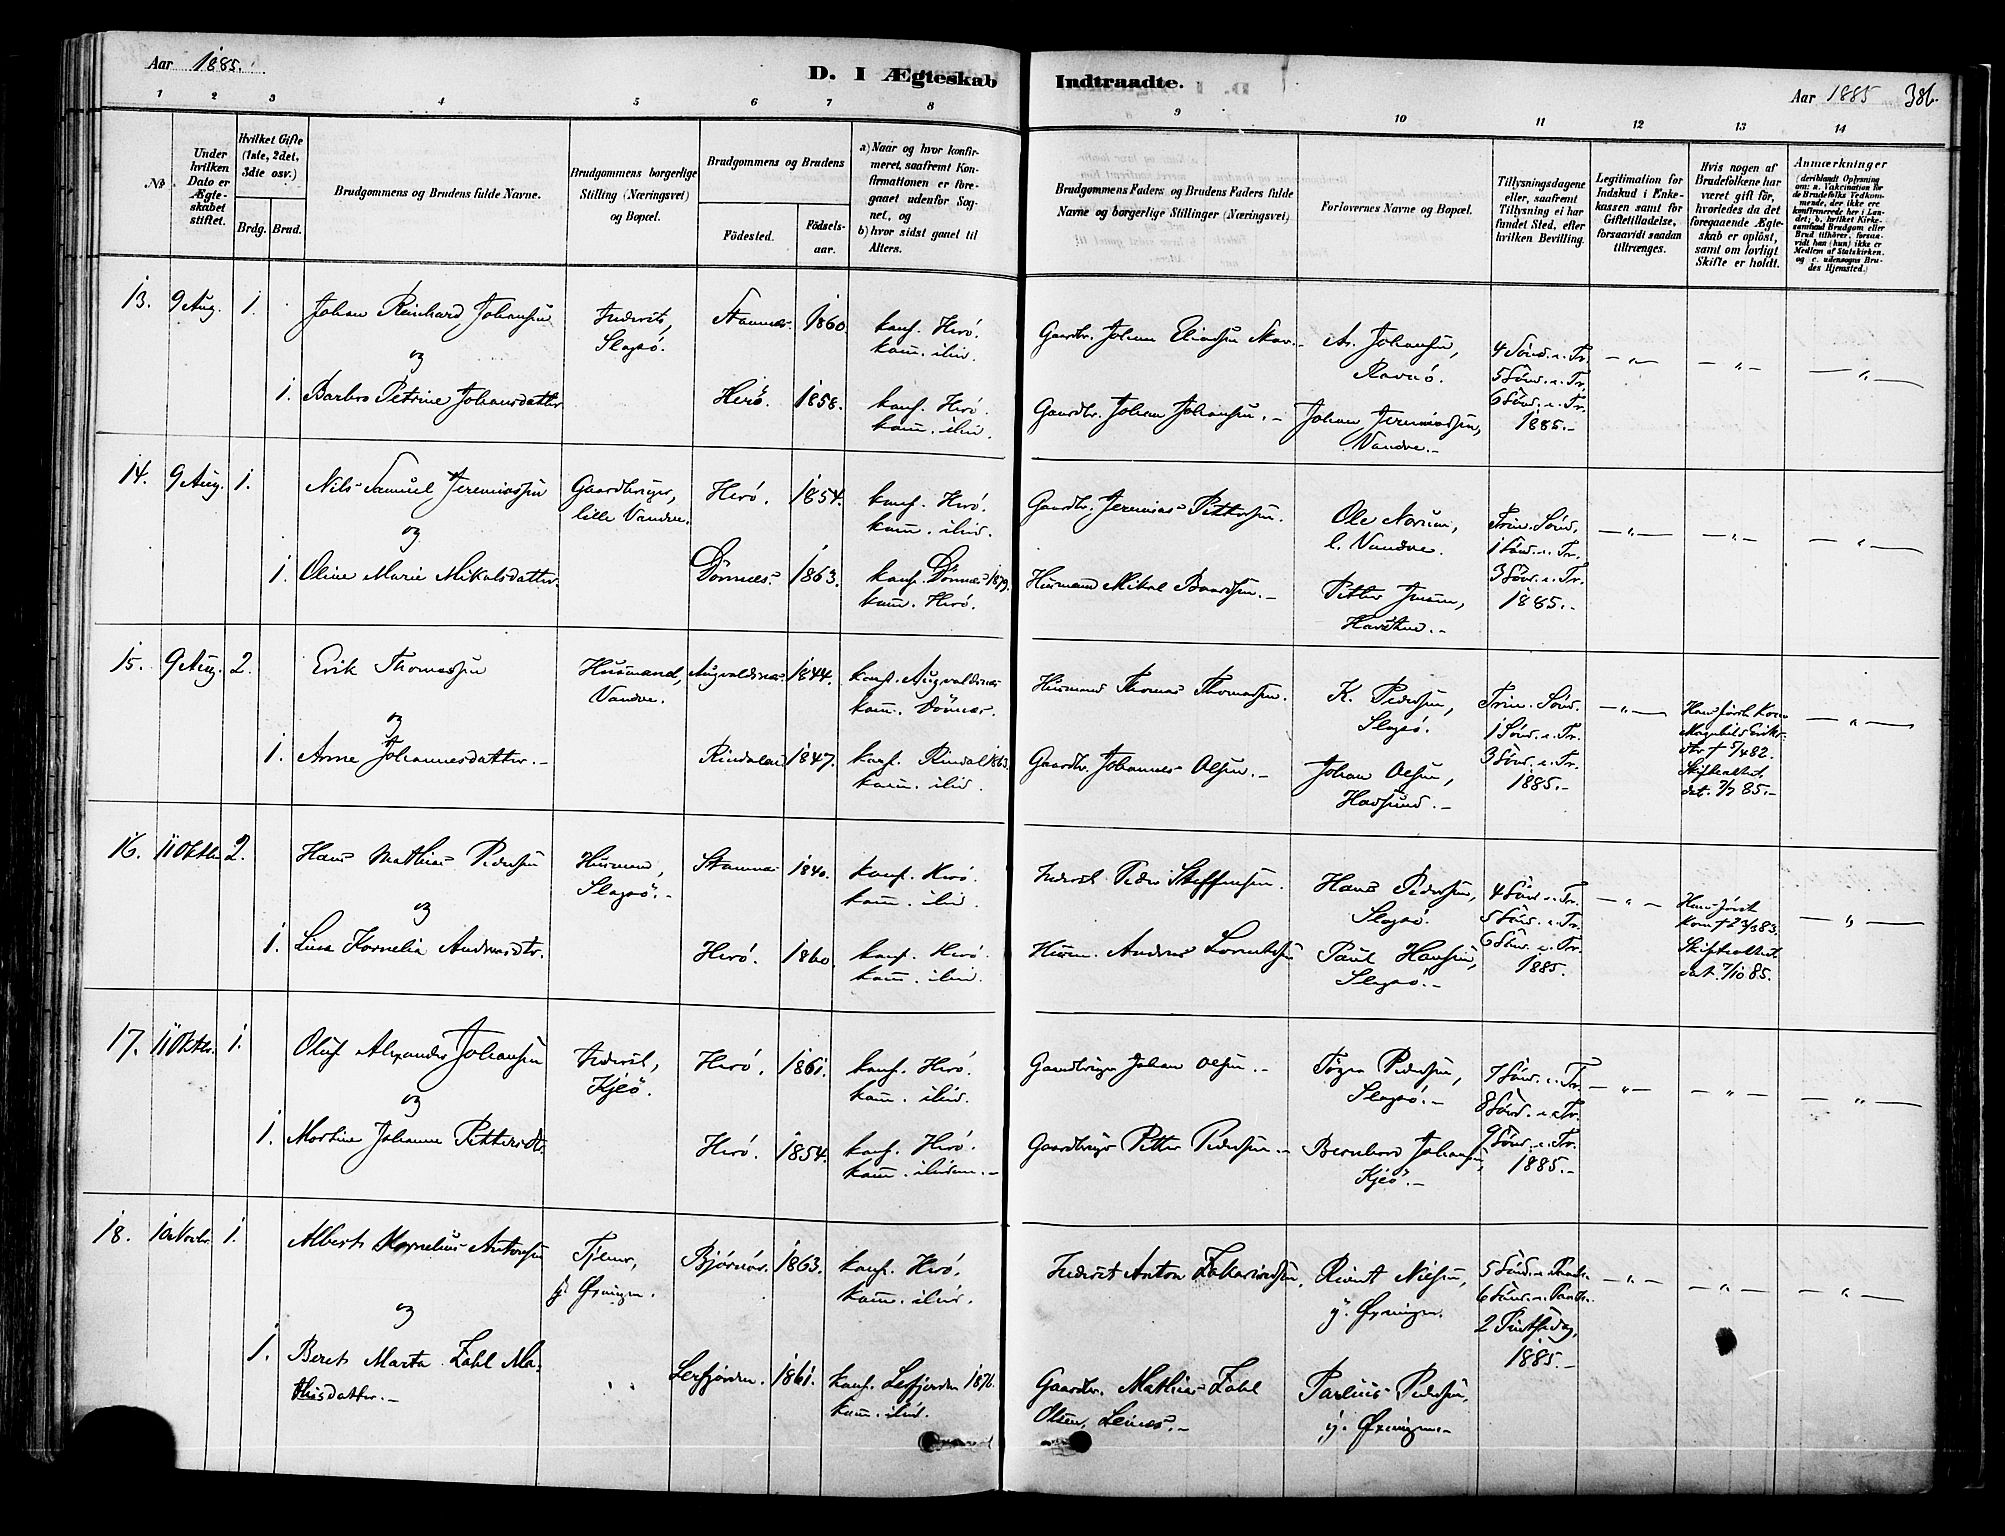 Aar 1885.
D. I Ægteskab Indtraadte.
Aar 1885 386.
1 2 3 4 5 6 7 8 9 10 11 12 13 14
No.
Under hvilken Dato er Ægteskabet stiftet.
Hvilket Gifte (1ste, 2det, 3die osv.)
Brdg. Brud.
Brudgommens og Brudens fulde Navne.
Brudgommens borgerlige Stilling (Næringsvei) og Bopæl.
Brudgommens og Brudens
Födested.
Födselsaar.
a) Naar og hvor konfirmeret, saafremt Konfirmationen er foregaaet udenfor Sognet, og
b) hvor sidst gaaet til Alters.
Brudgommens Faders og Brudens Faders fulde Navne og borgerlige Stillinger (Næringsvei)
Forlovernes Navne og Bopæl.
Tillysningsdagene eller, saafremt Tillysning ei har fundet Sted, efter hvilken Bevilling.
Legitimation for Indskud i Enkekassen samt for Giftetilladelse, forsaavidt saadan tiltrænges.
Hvis nogen af Brudefolkene har været gift før, hvorledes da det foregaaende Ægteskab er oplöst, samt om lovligt Skifte er holdt.
Anmærkninger
(deriblandt Oplysning om: a. Vakcination for de Brudefolks Vedkommende, der ikke ere konfirmerede her i Landet; b. hvilket Kirkesamfund Brudgom eller Brud tilhörer, forsaavidt han (hun) ikke er Medlem af Statskirken, og c. udensogns Brudes Hjemsted.)
13. 9 Aug. 1. Johan Reinhard Johansen
Inderst, Slapö. Stamnæs 1860. konf. Herö. kom. ilid.
Gaardbr. Johan Eliassen
Johansen, Ravnö.
4 Sönd. e. Tr. 5 Sönd. e. Tr. 6 Sönd. e. Tr. 1885.-
og
1. Barbro Petrine Johansdatter
Herö. 1858. konf. Herö. kom. ilid.
Gaardbr. Johan Johansen.-
Johan Jeremiassen, Vandve.-
14. 9 Aug. 1. Nils Samuel Jeremiassen
Gaardbruger, lille Vandve. Herö. 1854. konf. Herö. kom. ilid.
Gaardbr. Jeremias Pettersen.
Ole Norum, l. Vandve.
Trin. Sönd. 1 Sönd. e. Tr. 3 Sönd. e. Tr. 1885.-
og
1. Oline Marie Mikalsdatter.
Dönnæs 1863. konf. Dönnæs 1879. kom. Herö.
Husmand Mikal Baardsen.-
Petter Jensen,
15. 9 Aug. 2. Erik Thomassen
Husmand, Vandve. Augvaldsnæs 1844. konf. Augvaldsnæs kom. Dönnæs.
Husmand Thomas Thomassen.
K. Pedersen, Slapö.
Trin. Sönd. 1 Sönd. e. Tr. 3 Sönd. e. Tr. 1885.-
Hans förste Kone Magnhild Eriksdtr † 5/4 82. Skifteattest dat. 7/7 85.-
og
1. Anne Johannesdatter.-
Rindalen 1847. konf. Rindal 1863. kom. ilid.
Gaardbr. Johannes Olsen.-
Johan Olsen, Havsund.-
16. 11 Oktbr. 2. Hans Mathias Pedersen
Husmand, Slapö.- Stamnæs 1840. konf. Herö. kom. ilid.
Inderst Peder Steffensen.
Hans Pedersen, Slapö.
4 Sönd. e. Tr. 5 Sönd. e. Tr. 6 Sönd. e. Tr. 1885.
Hans förste Kone † 23/3 83. Skifteattest dat. 7/10 85.
og
1. Lina Kornelia Andreasdtr.
Herö. 1860. konf. Herö. kom. ilid.
Husm. Andreas
Paul Hansen, Slapö.-
17. 11 Oktbr. 1. Oluf Alexander Johansen
Inderst, Kjeö. Herö. 1861. konf. Herö. kom. ilid.
Gaardbruger Johan Olsen.-
Pedersen, Slapö.-
7 Sönd. e. Tr. 8 Sönd. e. Tr. 9 Sönd. e. Tr. 1885.-
og
1. Martine Johanne Pettersdtr.
Herö. 1854. konf. Herö. kom. ilidem.-
Gaardbruger Petter Pedersen.-
Bernhard Johansen, Kjeö.-
18. 1. Albert Kornelius Antonsen
Tjener, y. Øxningen. Bjørnør. 1863. konf. Herö. kom. ilid.
Inderst Anton Zakariassen,
Nielsen, y. Øxningen.
5 Sönd. e. Paaske. 6 Sönd. e. Paaske. 2 Pintsedag, 1885.-
og
1. Beret Marta Zahl Mathisdatter.-
Leirfjorden. 1861. konf. Leirfjorden 1876. kom. ilid.
Gaardbr. Mathias Zahl Olsen, Leines.-
Parlius Pedersen, y. Øxningen.-